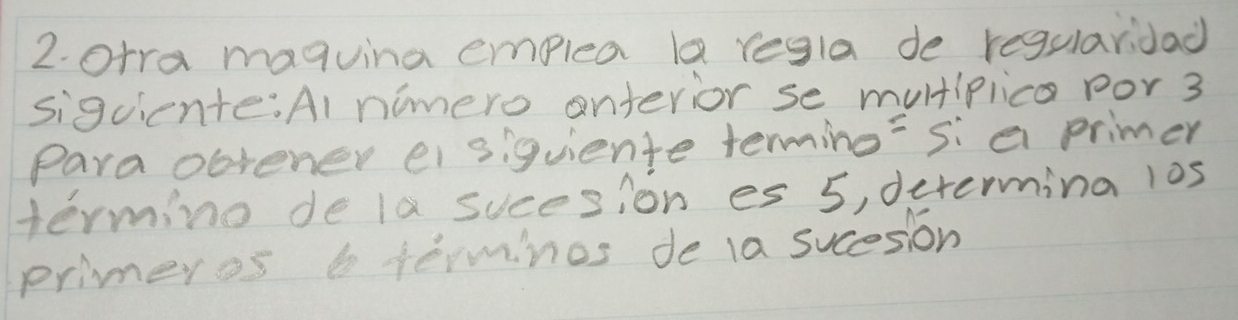 2. Otra maquina emplea la regla de regularidad
siguiente: Al número anterior se multiplica por 3
para obtener el siguiente termino = si el primer
término de la sucesión es 5, determina los
primeros 6 términos de la sucesión